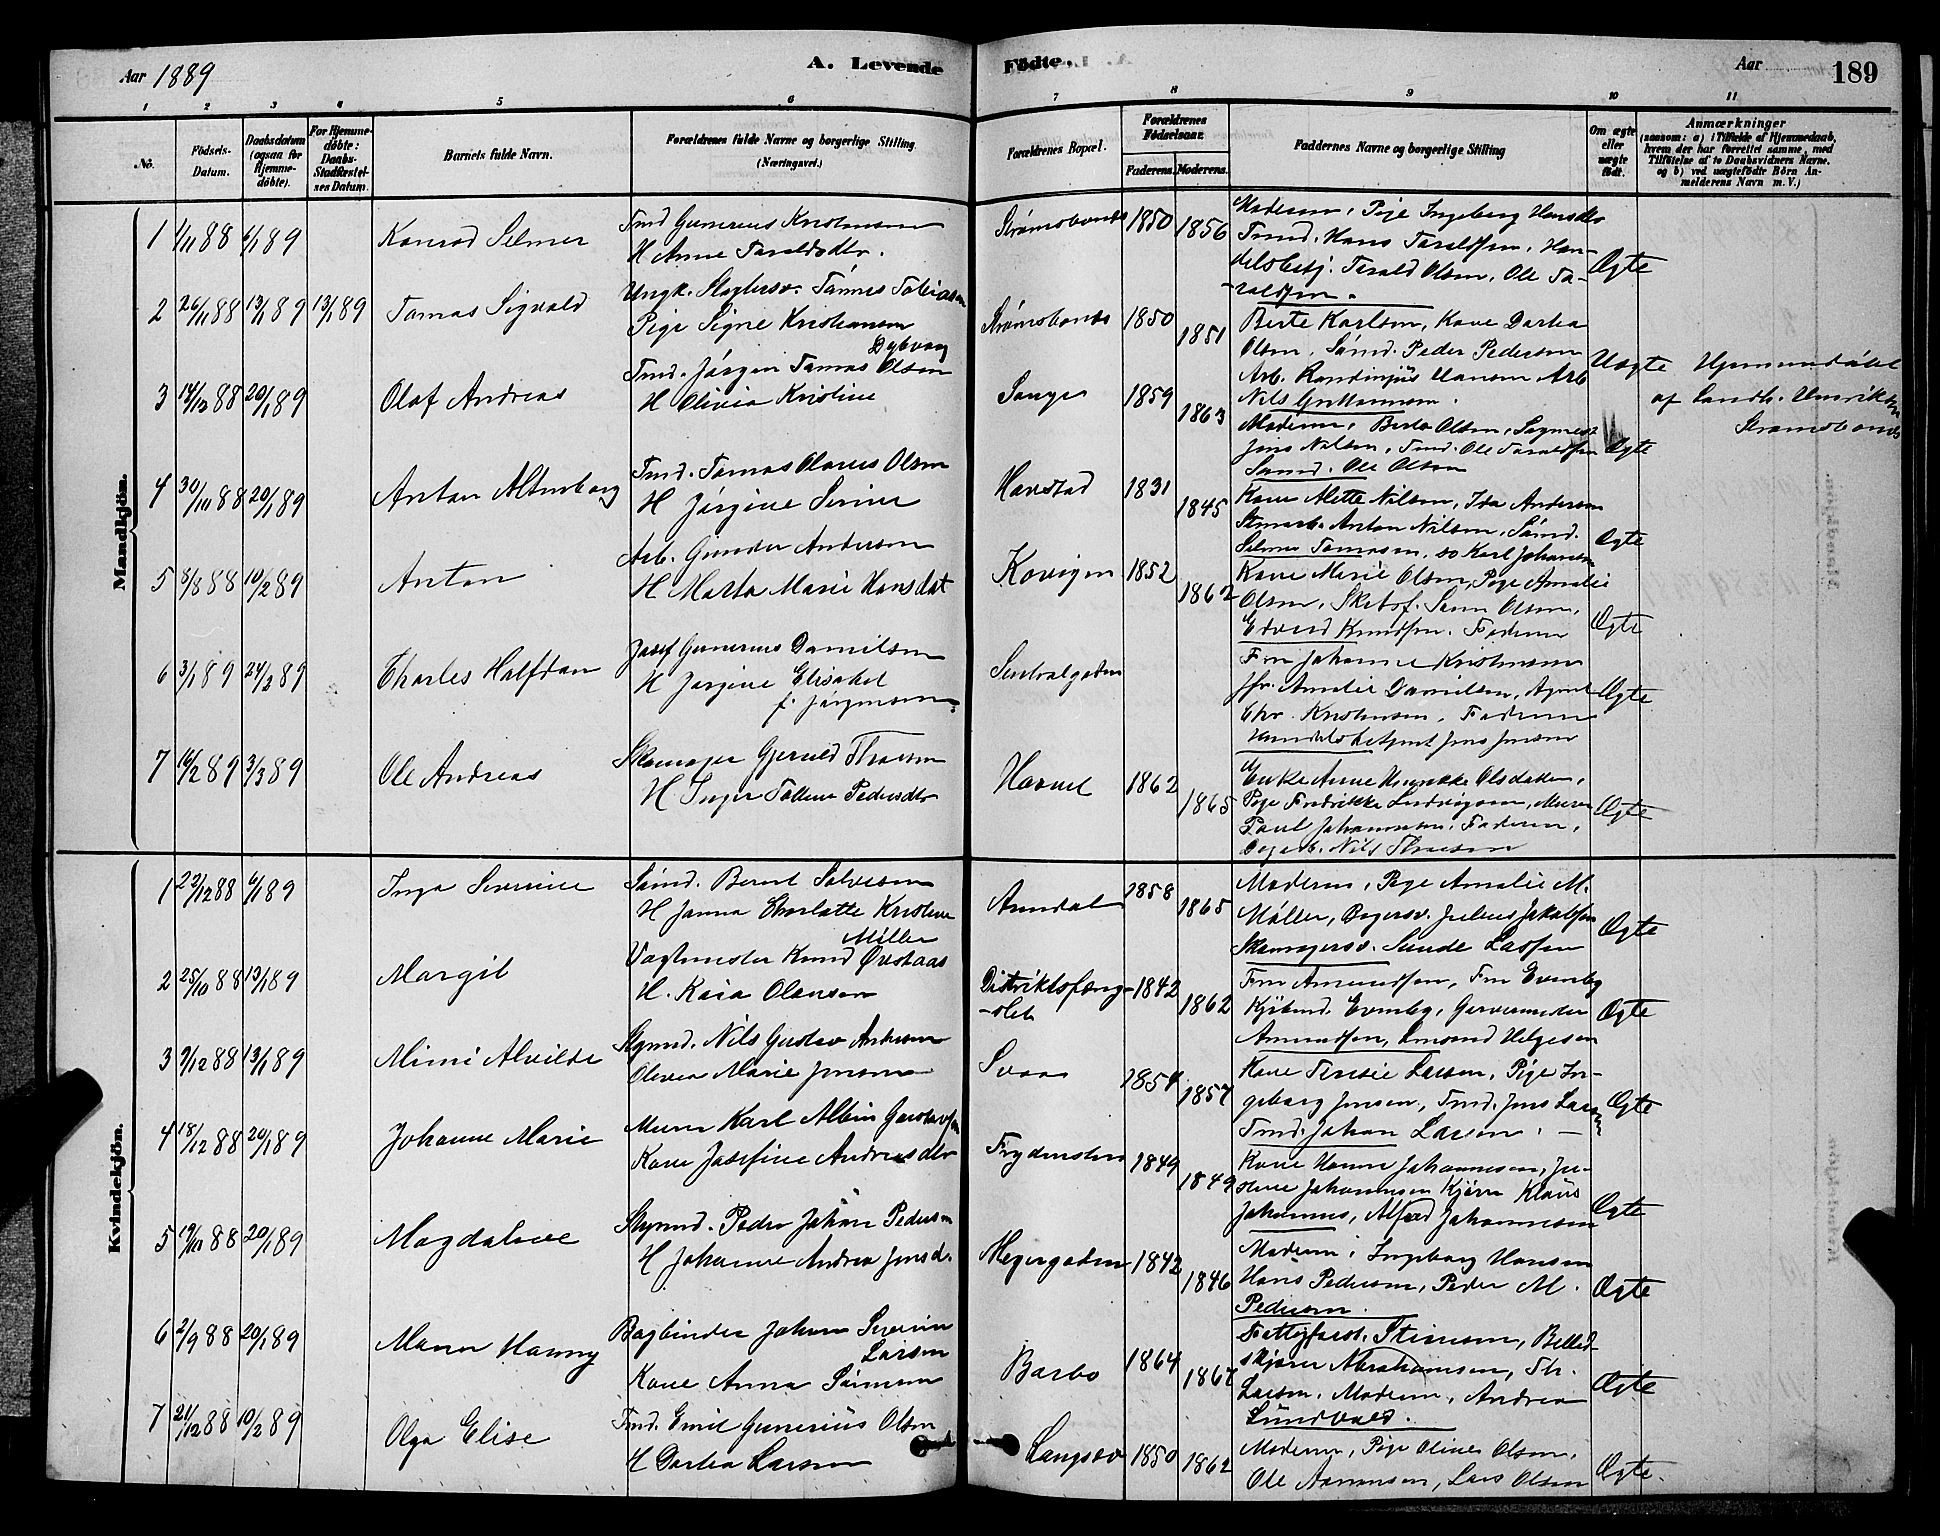 Aar 1889
A. Levende
Födte.
Aar
189
1 2 3 4 5 6 7 8 9 10 11
No.
Födsels-Datum.
Daabsdatum (ogsaa for Hjemme-döbte).
For Hjemme-döbte: Daabs-Stadfæstel-ses Datum.
Barnets fulde Navn.
Forældrenes fulde Navne og borgerlige Stilling (Næringsvei.)
Forældrenes Bopæl.
Forældrenes Födselsaar.
Faderens. Moderens.
Faddernes Navne og borgerlige Stilling
Om ægte eller uægte födt.
Anmærkninger
(saasom: a) i Tilfælde af Hjemmedaab, hvem der har forrettet samme, med Tilföielse af to Daabsvidners Navne. og b) ved uægtefödte Börn An-melderens Navn m. V.)
Mandkjön.
1 1/11 88 6/1 89 Konrad Selmer
Tmd Gunerius Kristensen
H Anne Taraldsdtr.
Strømsbonds 1850 1856
Moderen, Pige Ingeborg Hansdtr
Tmd. Hans Taraldsen, Han-
delsbetj. Terald Olsen, Ole Ta-
raldsen.
Ægte
2 26/11 88 13/1 89 13/1 89 Tomas Sigvald
Ungk. Slagtersv. Tønnes Tobiasen
Pige Signe Kristiansen
Dybvaag
Strømsbonds 1850 1851
Berte Karlsen, Kone Dortea
Olsen, Sømd. Peder Pedersen
Arb. Hansen Arb
Nils
Uægte
Hjemmedøbt
af Landh. Henriksen
Strømsbonds
3 14/12 88 20/1 89 Olaf Andreas
Tmd. Jørgen Tomas Olsen
H Olivia Kristine
Songe 1859 1863
Moderen, Berte Olsen, Sagmest
Jens Nilsen, Tmd. Ole Taraldsen
Sømd. Ole Olsen
Ægte
4 30/10 88 20/1 89 Anton Altenborg
Tmd. Tomas Olaves Olsen
H Jørgine Serine
Havstad 1831 1845
Kone Alette Nilsen, Ida Andersen
Anton Nilsen, Sømd.
Selmer Tomasen, Karl Johansen
Ægte
5 8/8 88 10/2 89 Anton
Arb. Gunder Andersen
H Marta Marie Hansdat
Kovigen 1852 1862
Kone Marie Olsen, Pige Amalie
Olsen, Skibsf. Olsen,
Edvard Knudsen. Faderen
Ægte
6 3/1 89 24/2 89 Charles Halfdan
Josef Gunerius Danielsen
H Jørgine Elisabet
f. Jørgensen
Sentralgaden
Fru Johanne Kristensen
Jfr. Amalie Danielsen, Agent
Chr. Kristensen. Faderen
Jens Jensen
Ægte
7 16/2 89 3/3 89 Ole Andreas
Skomager Gjeruld Thorsen
H Inger Tolline Pedersdtr
Havnet 1862 1865
Enke Anne Olsdatter,
Pige Fredrikke Ludvigsen, Murer
Poul Johannesen. Faderen,
Nils Thorsen
Ægte
Kvindekjön.
1 22/12 88 6/1 89 Inga Severine
Sømd. Bernt Salvesen
H Janna Charlotte Kristine
Møller
Arendal 1858 1865
Moderen, Pige Amalie M.
Møller, Bagersv. Julius Jakobsen
Skomagersv. Sunde Lassen
Ægte
2 25/10 88 13/1 89 Margit
Vagtmester Knud Øvstaas
H. Kaia Olausen
Distriktsfæng-
slet 1842 1862
Fru Amundsen, Fru Evenby
Kjøbmd. Evenby, Garvermester
Amundsen, Helgesen
Ægte
3 9/12 88 13/1 89 Mimi Alvilde
Styrmd. Nils Gustav Andersen
Olevia Marie Jensen
Svaa 1854 1857
Kone Teresie Larsen, Pige In-
geborg Jensen, Tmd. Jens Larsen
Tmd. Johan Larsen.
Ægte
4 18/12 88 20/1 89 Johanne Marie
Murer Karl Albin Gustavsen
Kone Josefine Andreasdtr
Frydensten 1849 1849
Kone Hanne Johannesen, Ju-
stine Johannesen Kjører Klaus
Johannes, Alfred Johannesen
Ægte
5 9/11 88 20/1 89 Magdalene
Styrmd. Peder Johan Pedersen
H Johanne Andrea Jensd.
Meyergaden 1842 1846
Moderen, Ingeborg Hansen
Hans Pedersen, Peder M.
Pedersen.
Ægte
6 2/9 88 20/1 89 Maren Hanny
Bogbinder Johan Severin
Larsen
Kone Anna Sørensen
Barbo 1864 1867
Fattigforst. Stiansen, Billed-
skjærer Abrahamsen, Th.
Larsen, Moderen, Andrea
Lundvald.
Ægte
7 21/12 88 10/2 89 Olga Elise
Tmd. Emil Gunerius Olsen
H Dortea Larsen
Langsæv 1850 1862
Moderen, Pige Oline Olsen,
Ole Aanonsen, Lars Olsen
Ægte.